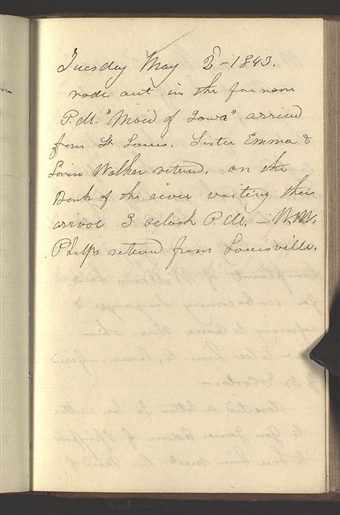 Tuesday May 2d - 1843.
rode out in the fore noon
P.M. "Maid of Iowa" arrived
from St Louis. Sister Emma &
Lorin Walker returd. on the
Bank of the river waiting their
arrival 3 oclock P.M. — W. W.
Phelps returd from Louisville.